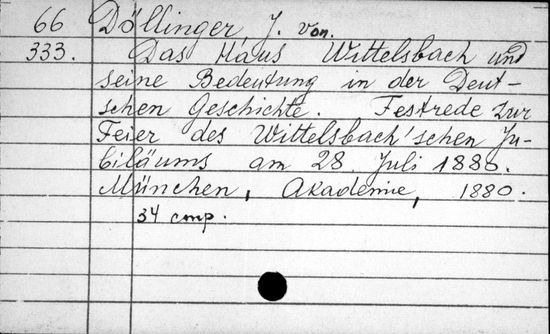 66 Döllinger, J. von.
333. Das Haus Wittelsbach und
seine Bedeutung in der Deut-
schen Geschichte. Festrede zur
Feier des Wittelsbach'schen Ju-
biläums am 28. Juli 1880.
München, Akademie, 1880.
34 стр.